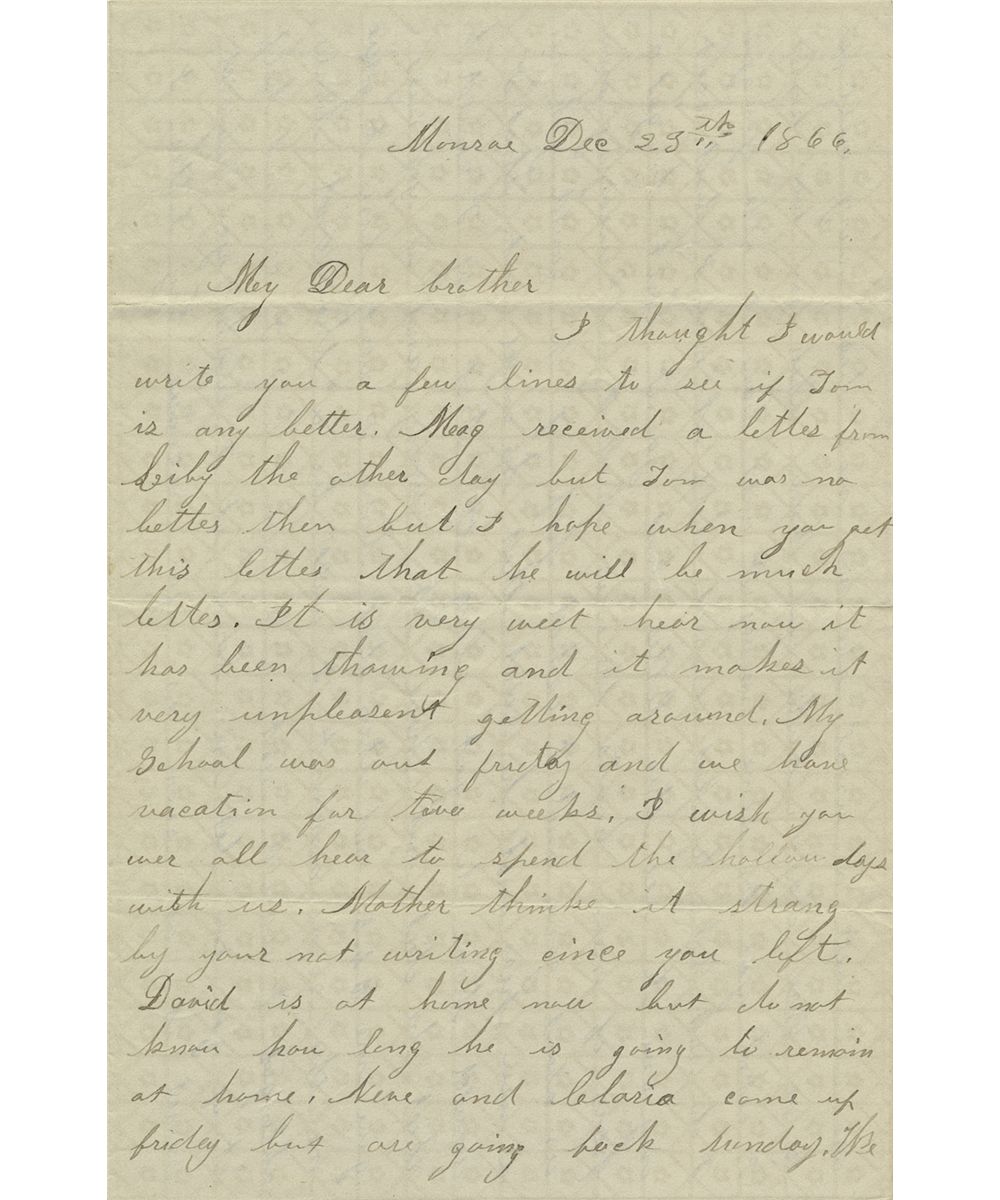 Monroe Dec 23th 1866.
Mey Dear brother
I thought I would
write you a few lines to see if Tom
is any better. Meag received a letter from
Liby the other day but Tom was no
better then but I hope when you get
this letter that he will be much
better. It is very weet hear now it
has been thawing and it makes it
very unpleasent getting around. My
School was out friday and we have
vacation for two weeks. I wish you
wer all hear to spend the hollow days
with us. Mother thinks it strang
by your not writing since you left.
David is at home now but do not
know how long he is going to remain
at home. and come up
friday but are going back sunday. We